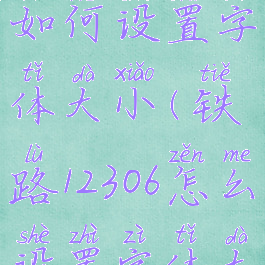 如何设置字
tǐ dà xiǎo tiě
体大小(铁
lù zěn me
路12306怎么
shè zhì zì tǐ dà
设置字体大